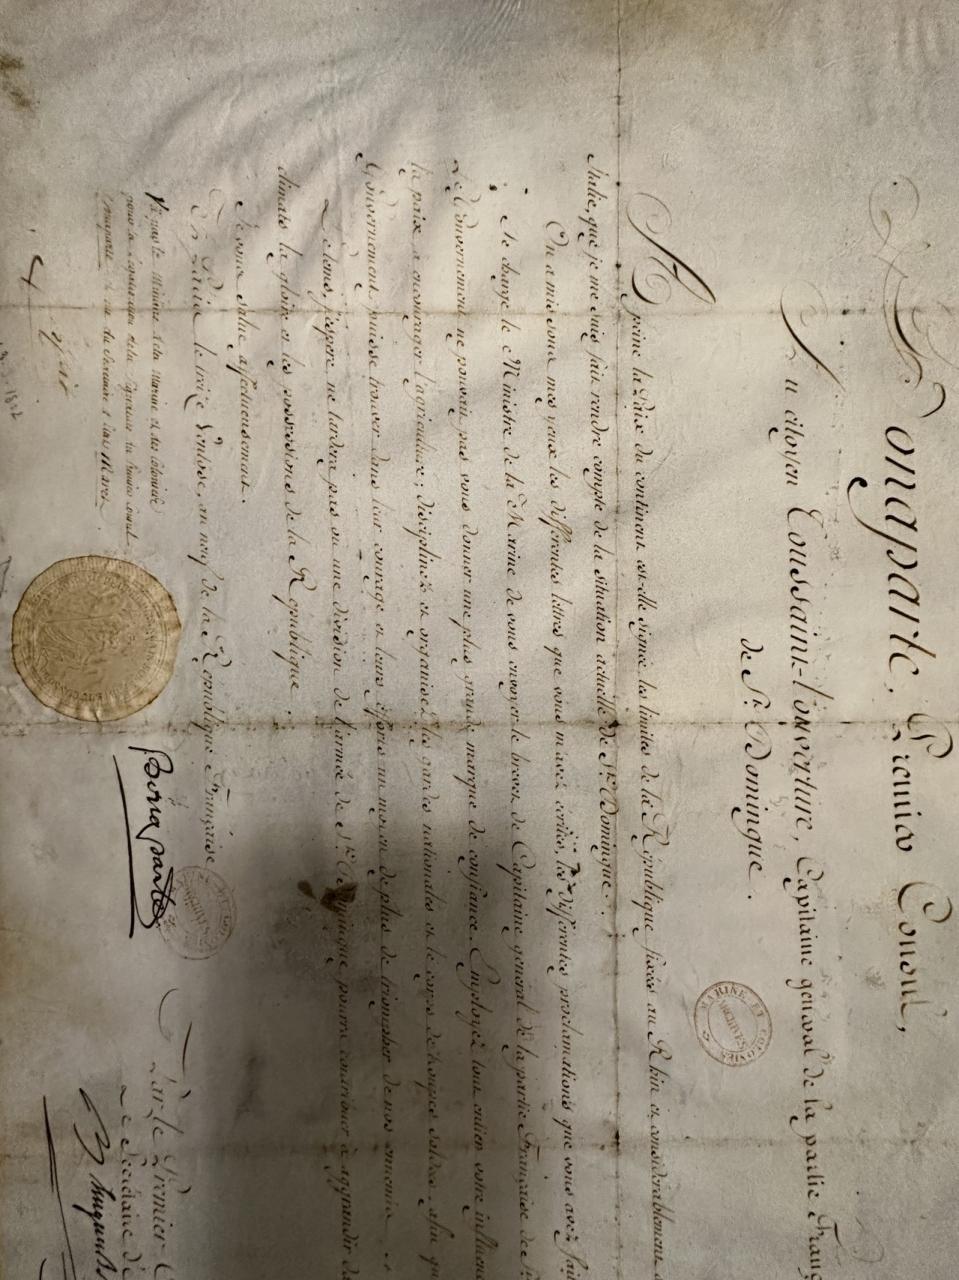 Bonaparte, Premier Consul,
Au citoyen Toussaint-l'ouverture, Capitaine général de la partie Franç
de St. Domingue.
A peine la Paix du continent est-elle signée, les limites de la République fixées au Rhin et considérablement
Italie, que je me suis fait rendre compte de la situation actuelle de St. Domingue.
On a mis sous mes yeux les différentes lettres que vous m'avez écrites, les différentes proclamations que vous avez fait
Je charge le Ministre de la Marine de vous envoyer le brevet de Capitaine général de la partie Française de St
Le Gouvernement ne pouvait pas vous donner une plus grande marque de confiance. Employez tout entier votre influenc
la paix, à encourager l'agriculture; disciplinez et organisez les gardes nationales et le corps de troupes soldées, afin qu
Gouvernement puisse trouver dans leur courage et leurs efforts un moyen de plus de triompher de nos ennemis.
Le tems, j'espere, ne tardera pas où une division de l'armée de St. Domingue pourra contribuer à aggrandir da
climats la gloire et les possessions de la République.
Je vous salue affectueusement.
le treize Ventose, an neuf de la République Française.
MARINE ET COLONIES
ARCHIVES
Vu par le Ministre de la Marine et des Colonies
pour la Signature du Premier Consul
Bonaparte et du Secrétaire d'état Maret
Bonaparte
Par le Premier
Le Secrétaire d'é
Hugues